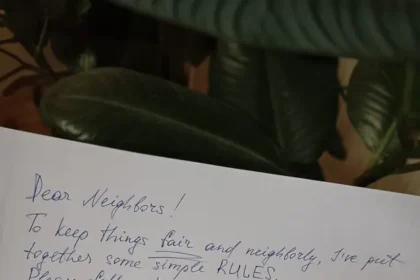 Dear Neighbors!
To keep things fair and neighborly, I've put
together some simple RULES.